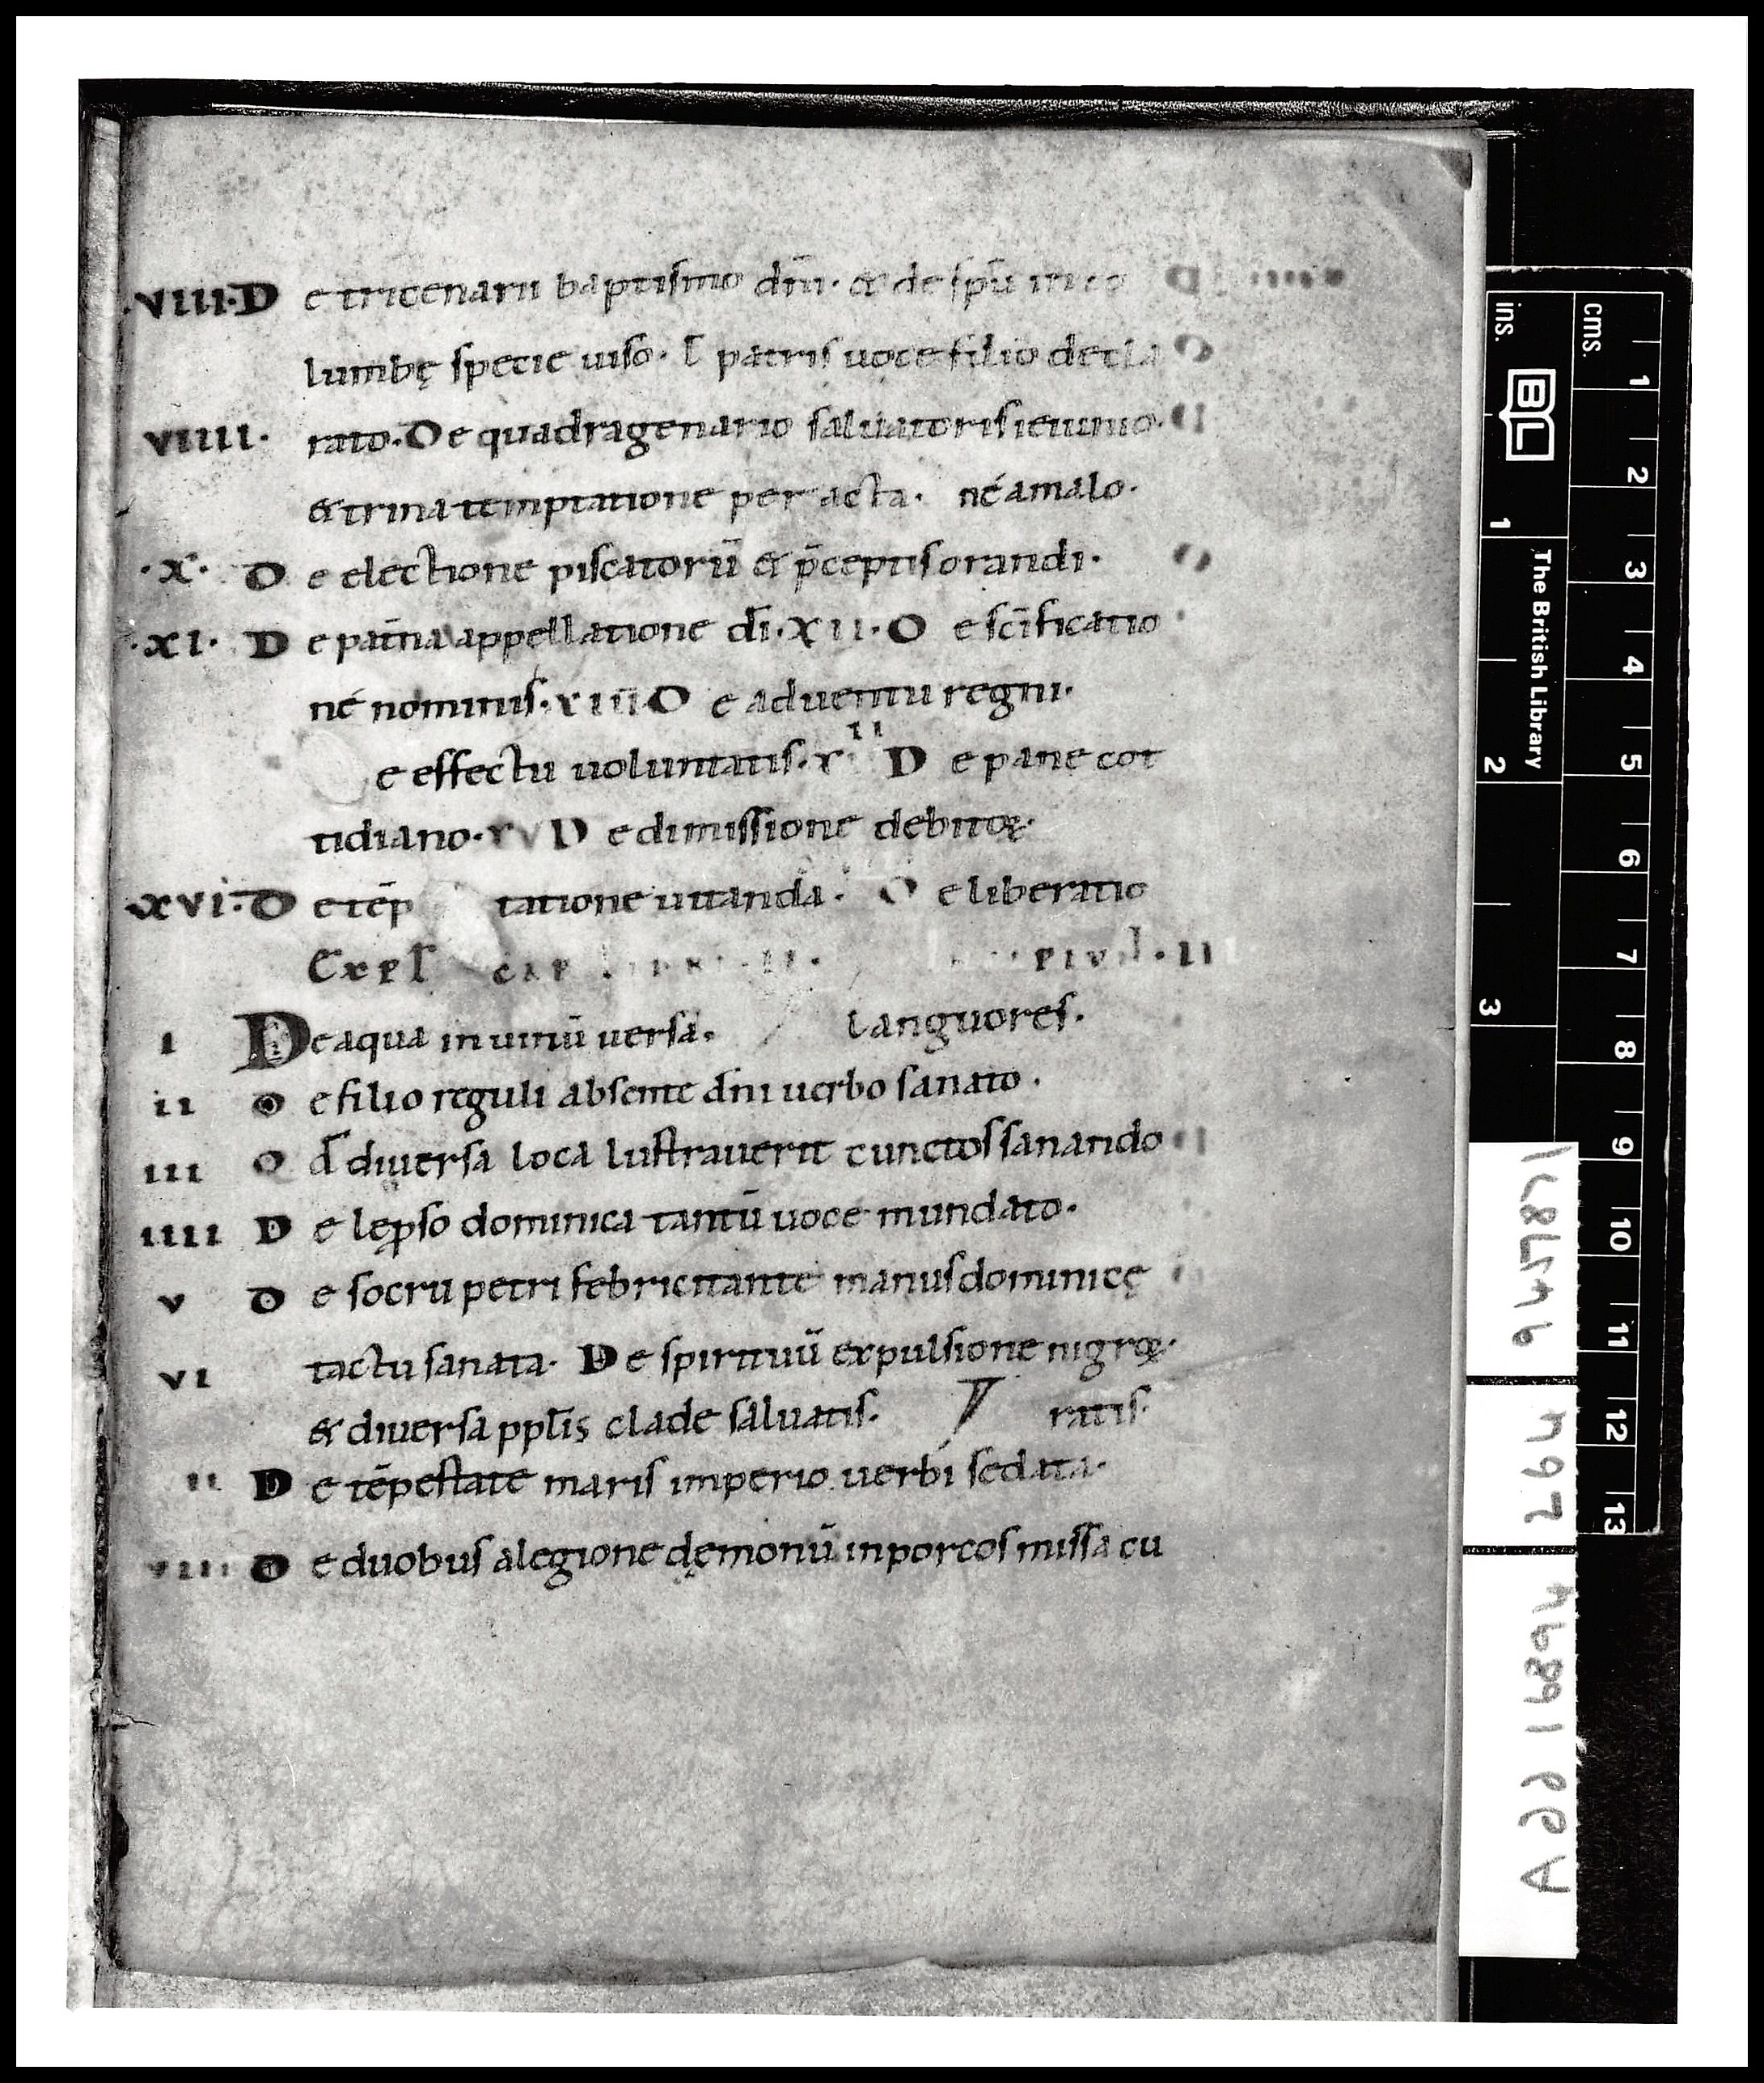 .VIII.D e tricenarii baptismo dn̄i. & de sp̄u in co
lumbę specie uiso. ł patris uoce filio decla
VIIII. rato. De quadragenario saluatoris ieiunio.
& trina temptatione per acta. né amalo.
.X. D e electione piscatorū & p̄ceptis orandi.
.XI. D e pat̄na appellatione dī. XII. D e sc̄ificatio
né nominis. XIII D e aduentu regni.
e effectu uoluntatis. D e pane cot
tidiano. XV D e dimissione debitoꝝ.
XVI. D e tēp tatione uitanda. D e liberatio
Expł
I De aqua in uinū uersa. Languores.
II D e filio reguli absente dn̄i uerbo sanato.
III Q d̄ diuersa loca lustrauerit cunctos sanando
IIII D e lep̱so dominica tantū uoce mundato.
V D e socru petri febricitante manus dominicę
VI tactu sanata. De spirituū expulsione nigroꝝ.
& diuersa ppl̄is clade saluatis. ratis.
II D e tēpestate maris imperio uerbi sedata.
VIII D e duobus a legione dęmonū in porcos missa cu
ins. cms.
BL
The British Library
1 2 3
1 2 3 4 5 6 7 8 9 10 11 12 13